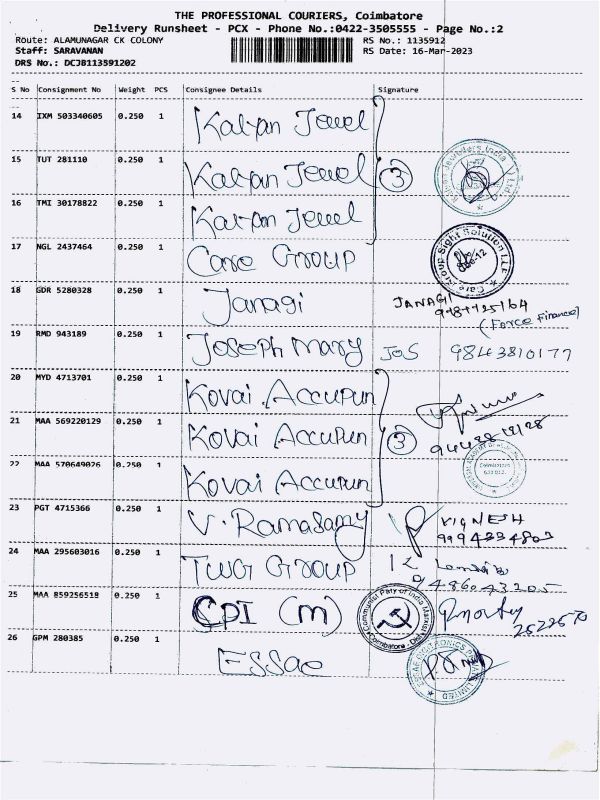 THE PROFESSIONAL COURIERS, Coimbatore
Delivery Runsheet - PCX - Phone No.:0422-3505555 - Page No.:2
Route: ALAMUNAGAR CK COLONY RS No.: 1135912
Staff: SARAVANAN RS Date: 16-Mar-2023
DRS No.: DCJB113591202
S No Consignment No Weight PCS Consignee Details Signature
14 IXM 503340605 0.250 1 Kalyan Jewel
15 TUT 281110 0.250 1 Kalyan Jewel 3
16 TMI 30178822 0.250 1 Kalyan Jewel
17 NGL 2437464 0.250 1 Care Group Care Group Sight Solution LLP
18 GDR 5280328 0.250 1 Janagi JANAGI
(Force Finance)
19 RMD 943189 0.250 1 Joseph Mary JOS 9843810177
20 MYD 4713701 0.250 1 Kovai Accupun
21 MAA 569220129 0.250 1 Kovai Accupun 3
22 MAA 570649026 0.250 1 Kovai Accupun Coimbatore
23 PGT 4715366 0.250 1 V. Ramasamy VIGNESH
24 MAA 295603016 0.250 1 TWG Group
9486043205
25 MAA 859256518 0.250 1 CPI (M) Communist Party of India Marxist Coimbatore
26 GPM 280385 0.250 1 ESSAE